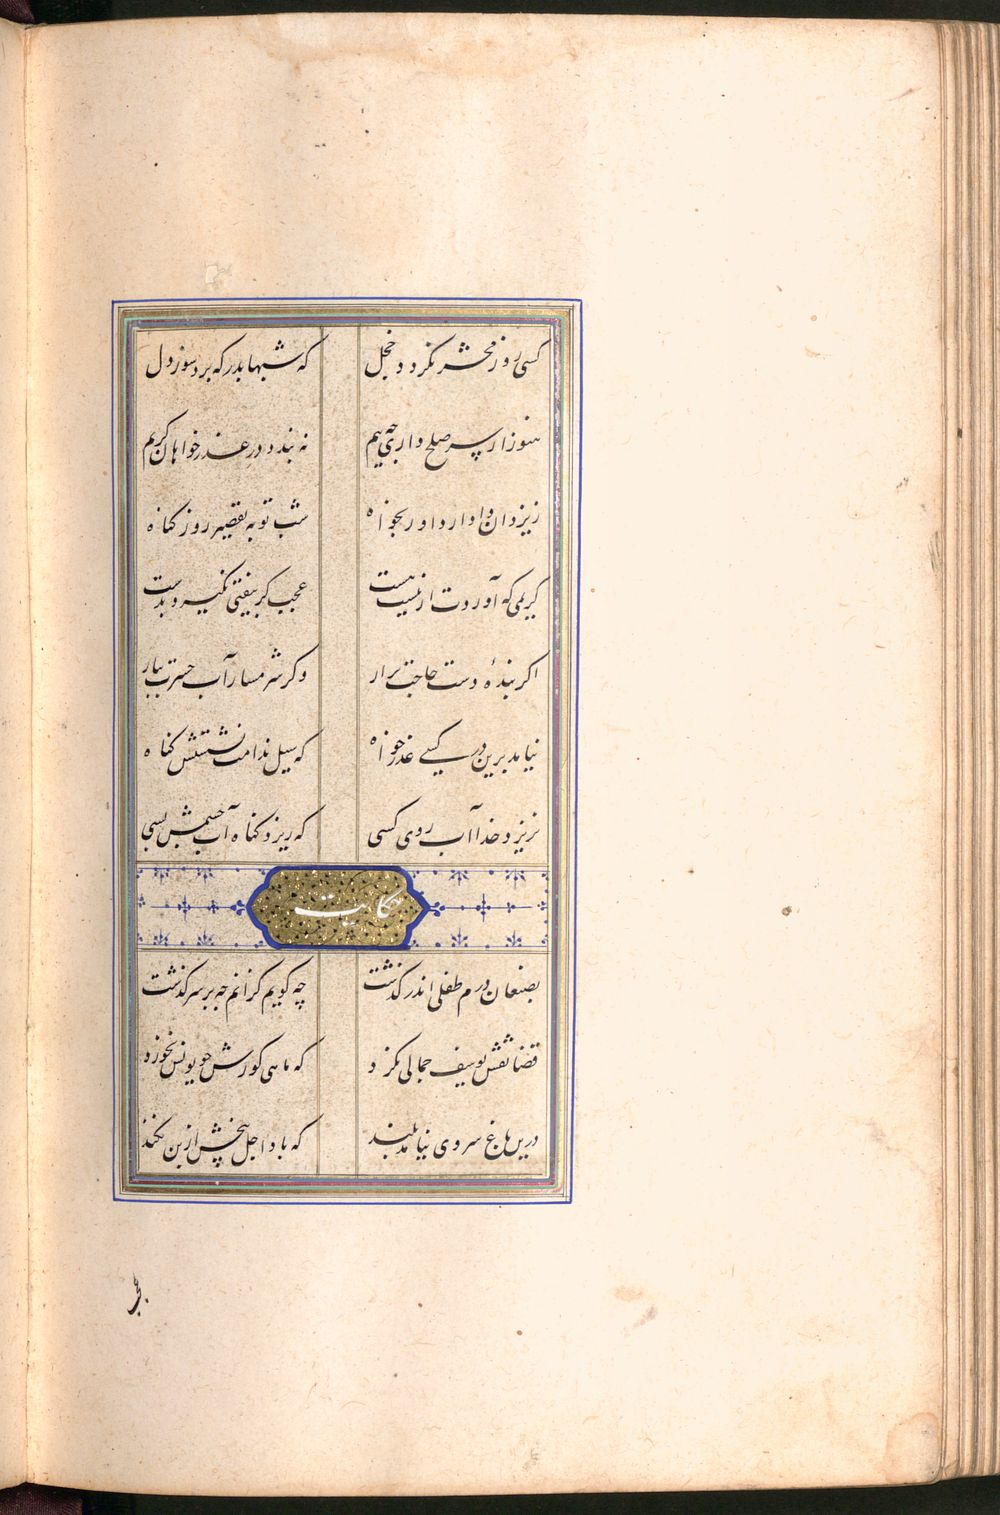 کسی روز محشر نکردد خجل که شبها بدرکه برد سوز دل
هنوز ار سر صلح داری چه بیم نه بندد در عذر خواهان کریم
ز یزدان داوار داور بخواه شب توبه تقصیر روز کناه
کریمی که آوردت از نیست هست عجب کر بیفتی نکیرد بدست
اکر بندۀ دست حاجت برار وکر شرمسار آب حسرت ببار
نیامد برین در کسی عذر خواه که سیل ندامت نشستش کناه
نریزد خدا آب روی کسی که ریزد کناه آب چشمش بسی
حکایت
بصنعان درم طفلی اندر کذشت چه کویم کزانم چه بر سر کذشت
قضا نقش یوسف جمالی نکرد که ماهی کورش چو یونس نخورد
درین باغ سروی نیامد بلند که باد اجل بیخش از بن نکند